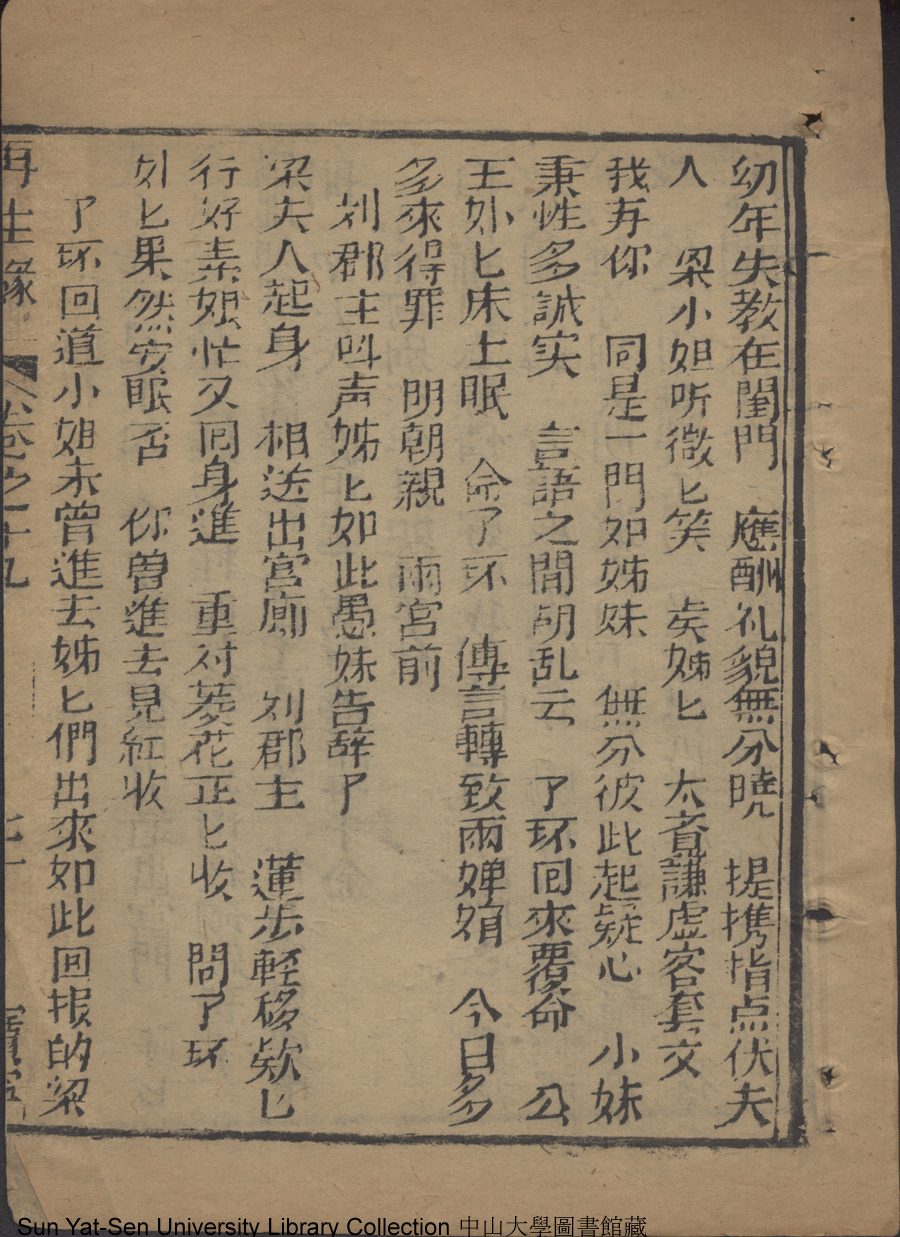 幼年失教在閨門　應酬礼貌無分曉　提携指点伏夫
人　梁小姐听微匕笑　矣姊匕　太斉謙虚客套文
我再你　同是一門如姊妹　無分彼此起疑心　小妹
秉性多誠实　言語之間胡乱云　了环囬來覆命　公
主妳匕床上眠　命了环　傳言轉致兩嬋娟　今日多
多來得罪　明朝親　兩宮前
刘郡主叫声姊匕如此愚妹告辞了
梁夫人起身　相送出宮廊　刘郡主　蓮步輕移欵匕
行　好素娘忙又囘身進　重对菱花正匕收　問了环
妳匕果然安眠否　你曽進去見紅收
了环回道小姐未曾進去姊匕們出來如此回报的梁
再生縁　卷之十九
Sun Yat-Sen University Library Collection 中山大學圖書館藏